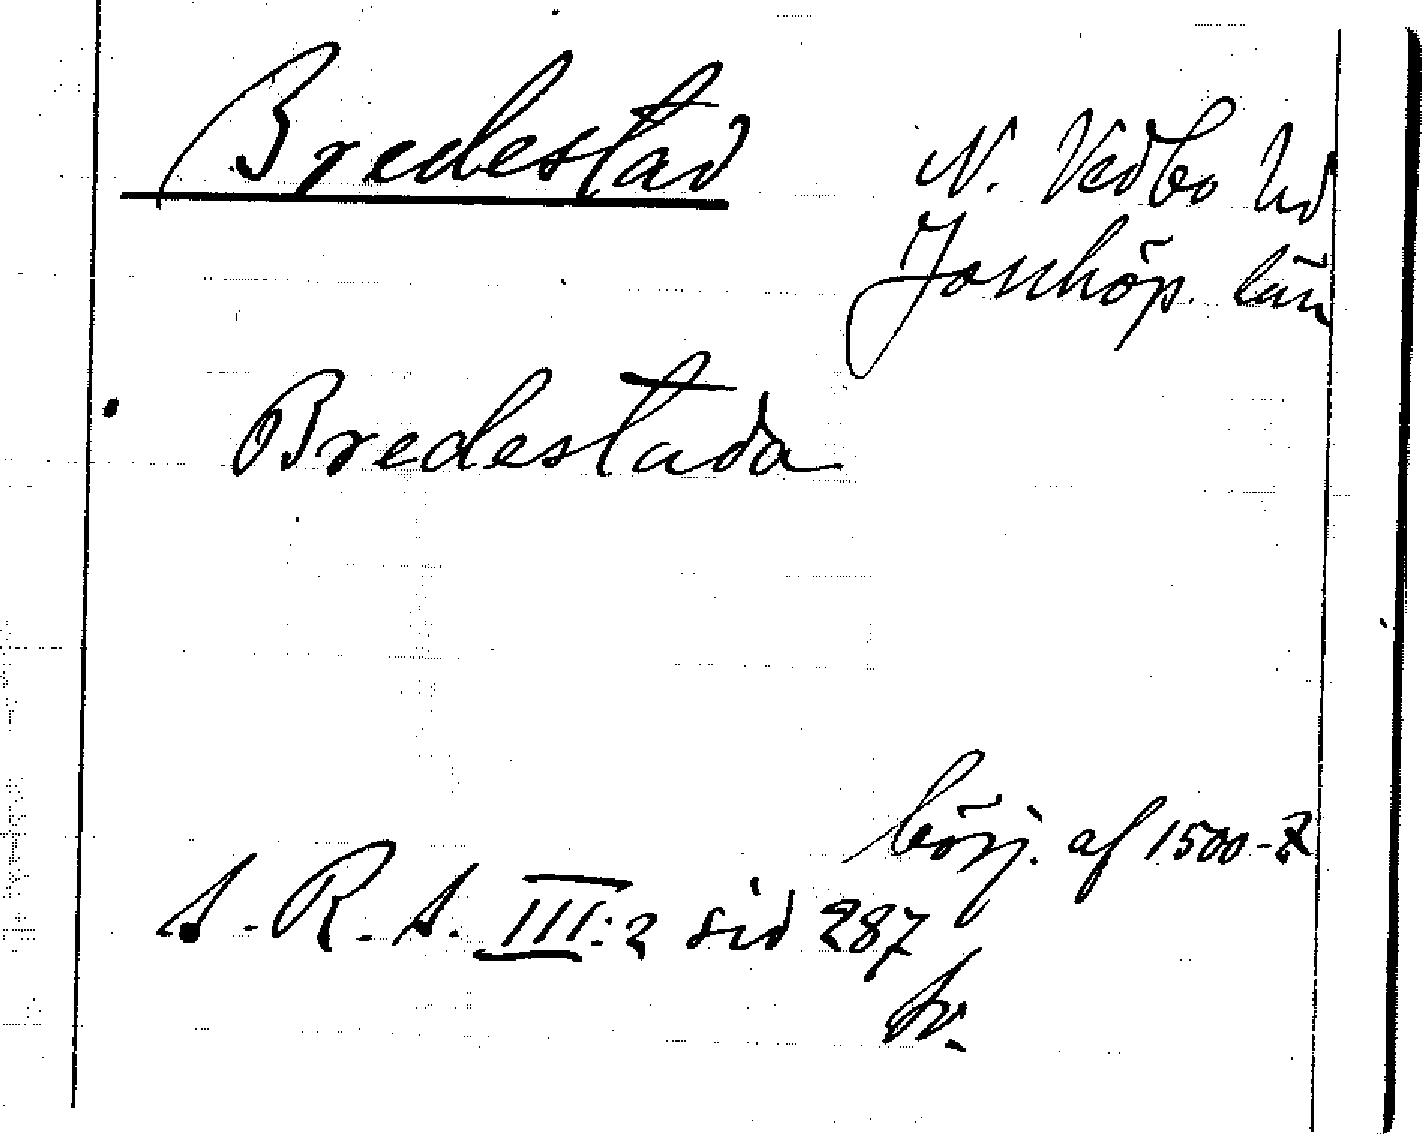 Bredestad
N. Vedbo hd
Jönköp. län
Bredestada
börj. af 1500-t
S. R. S. III:2 sid 287